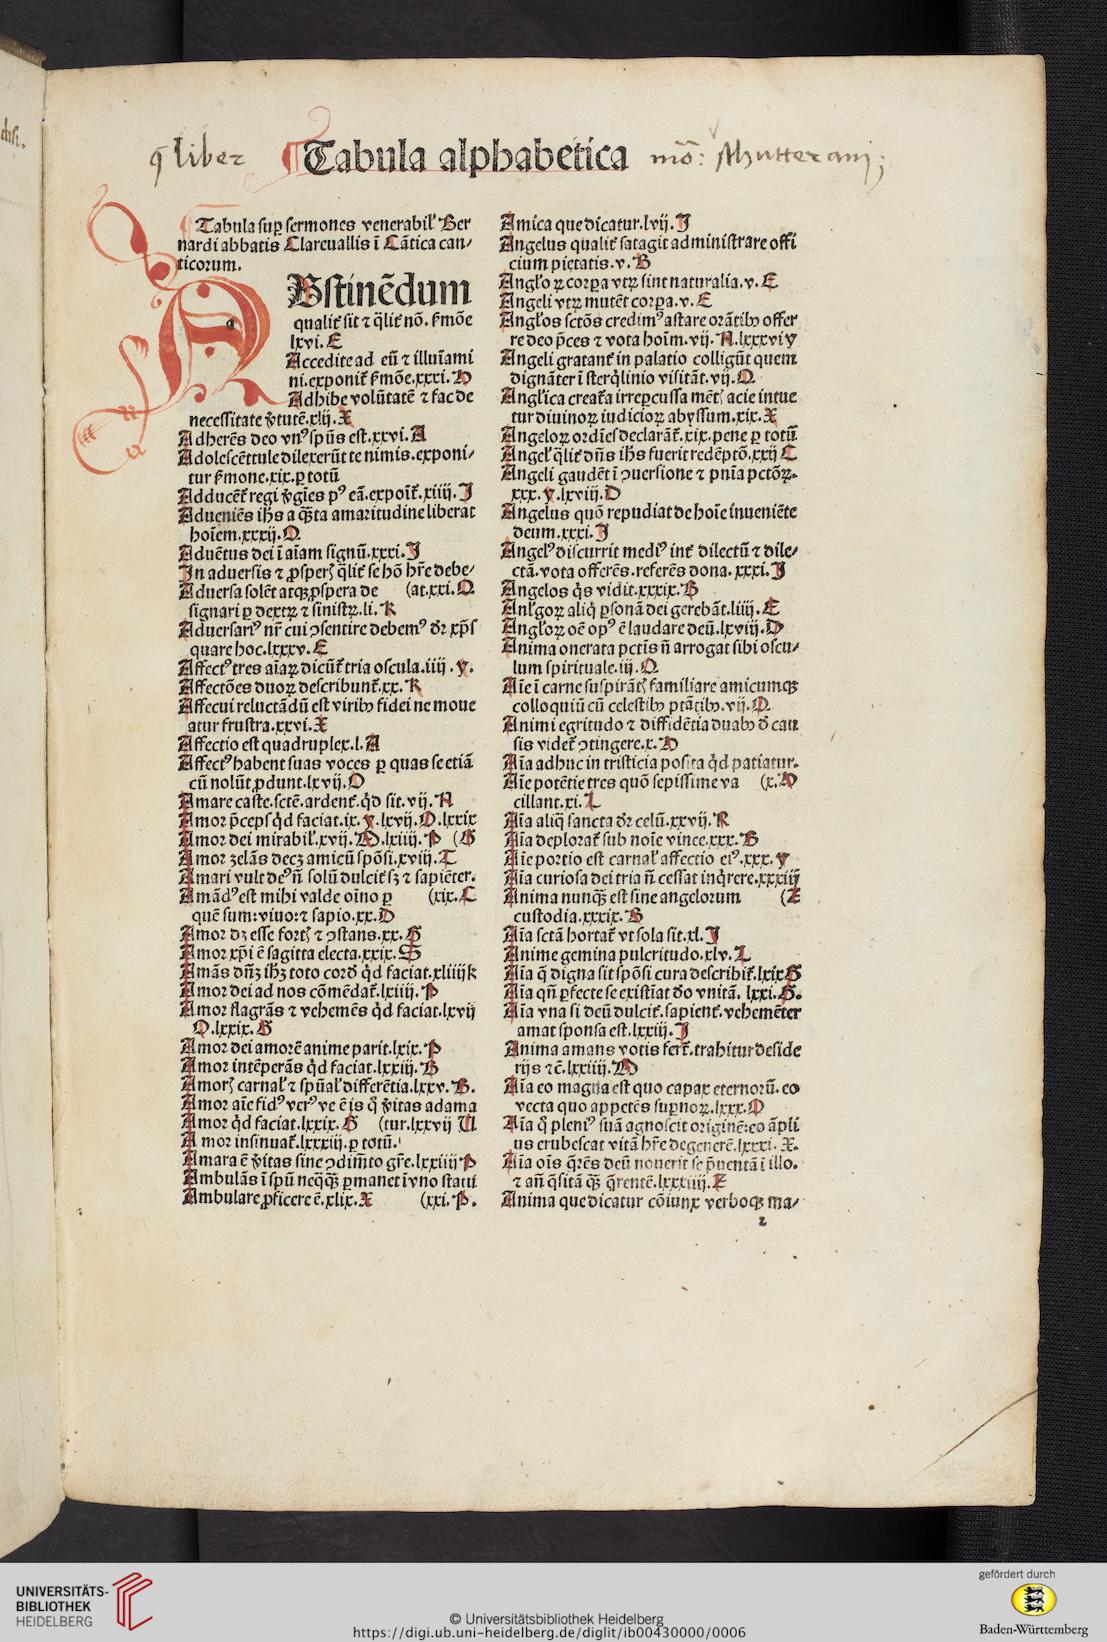 dısı.
ꝗ liber
Tabula alphabetica
mo̅: sthutterani;
Tabula suꝑ sermones venerabil̛ Ber
nardi abbatis Clareuallis i̅ Ca̅tica can⸗
ticorum.
a
Bstine̅dum
qualit̛ sit ⁊ q̛lit̛ no̅. s̛mo̅e
lxvi. E
Accedite ad eu̅ ⁊ illui̅ami
ni.exponit̛ s̛mo̅e.xxxi. D
Adhibe volu̅tate̅ ⁊ fac de
necessitate v̛tute̅.xlij. X
Adhere̅s deo vnꝰ spu̅s est.xxvi. A
Adolesce̅tule dilexeru̅t te nimis.exponi⸗
tur s̛mone.xix.ꝑ totu̅
Adducẽt̛ regi v̛gi̅es pꝰ ea̅.expoi̅t̛.xiiij. J
Adueniẽs ihs̅ a q̅sta amaritudine liberat
hoi̅em.xxxij. O
Adue̅tus dei i̅ ai̅am signu̅.xxxi. J
In aduersis ⁊ ꝓsperꝭ q̛lit̛ se ho̅ hr̅e debe⸗
Aduersa sole̅t atqꝫ ꝓspera de (at.xxi. O
signari ꝑ dextrꝝ ⁊ sinistrꝝ.li. K
Aduersariꝰ nr̅ cui ꝯsentire debemꝰ dr̅ xp̅s
quare hoc.lxxxv. E
Affectꝰ tres ai̅aꝝ dicu̅t̛ tria oscula.iiij. y.
Affectio̅es duoꝝ describunt̛.xx. K
Affectui relucta̅du̅ est viribꝫ fidei ne moue
atur frustra.xxvi. X
Affectio est quadruplex.l. A
Affectꝰ habent suas voces ꝑ quas se etia̅
cu̅ nolu̅t ꝓdunt.lxvij. O
Amare caste.scte̅.ardent̛.q̛d sit.vij. N
Amor p̅ceps q̛d faciat.ix. y.lxvij. O.lxxix
Amor dei mirabil̛.xvij. M.lxiiij. P (G
Amor zela̅s decꝫ amicu̅ spo̅si.xviij. T
Amari vult deꝰ n̅ solu̅ dulcit̛ sꝫ ⁊ sapie̅ter.
Ama̅dꝰ est mihi valde oi̅no ꝑ (xix. C
que̅ sum:viuo:⁊ sapio.xx. D
Amor dꝫ esse fortꝭ ⁊ ꝯstans.xx. G
Amor xp̅i e̅ sagitta electa.xxix. S
Ama̅s dn̅ꝫ ihꝫ toto cord̛ q̛d faciat.xliiij k
Amor dei ad nos co̅me̅dat̛.lxiiij. P
Amor flagra̅s ⁊ veheme̅s q̛d faciat.lxvij
O.lxxix. G
Amor dei amore̅ anime parit.lxix. P
Amor inte̅pera̅s q̛d faciat.lxxiij. B
Amorꝭ carnal̛ ⁊ spu̅al̛ differe̅tia.lxxv. B.
Amor ai̅e fidꝰ verꝰ ve e̅ is q̛ v̛itas adama
Amor q̛d faciat.lxxix. G (tur.lxxvij U
Amor insinuat̛.lxxxiij.ꝑ totu̅.
Amara e̅ v̛itas sine ꝯdim̅to gr̅e.lxxiiij P
Ambula̅s i̅ spu̅ neqꝫꝗ̅ ꝑmanet i̅ vno statui
Ambulare ꝓficere e̅.xlix. X (xxi. P.
Amica que dicatur.lvij. J
Angelus qualit̛ satagit administrare offi
cium pietatis.v. B
Angl̛oꝝ corꝑa vtrꝫ sint naturalia.v. E
Angeli vtrꝫ mute̅t corꝑa.v. E
Angl̛os scto̅s credimꝰ astare ora̅tibꝫ offer
re deo p̅ces ⁊ vota hoi̅m.vij. N.lxxxvi y
Angeli gratant̛ in palatio colligu̅t quem
digna̅ter i̅ sterq̛linio visita̅t.vij. O.
Angl̛ica creat̛a irreꝑcussa me̅tꝭ acie intue
tur diuinoꝝ iudicioꝝ abyssum.xix. X
Angeloꝝ ordi̅es declara̅t̛.xix.pene ꝑ totu̅
Angel̛ q̛lit̛ dn̅s ihs̅ fuerit rede̅pto̅.xxij C
Angeli gaude̅t i̅ ꝯuersione ⁊ pn̅ia pcto̅ꝝ.
xxx. y.lxviij. D
Angelus quo̅ repudiat de hoi̅e inuenie̅te
deum.xxxi. J
Angelꝰ discurrit mediꝰ int̛ dilectu̅ ⁊ dile⸗
cta̅.vota offere̅s.refere̅s dona.xxxi. J
Angelos q̛s vidit.xxxix. B
Anl̛goꝝ aliq̛ ꝑsona̅ dei gereba̅t.liiij. E
Angl̛oꝝ oe̅ opꝰ e̅ laudare deu̅.lxviij. D
Anima onerata pctis̅ n̅ arrogat sibi oscu⸗
lum spirituale.iij. O
Ai̅e i̅ carne suspira̅tꝭ familiare amicumqꝫ
colloquiu̅ cu̅ celestibꝫ pta̅tibꝫ.vij. O.
Animi egritudo ⁊ diffide̅tia duabꝫ d̛ cau
sis videt̛ ꝯtingere.x. D
Ai̅a adhuc in tristicia posita q̛d patiatur.
Ai̅e pote̅tie tres quo̅ sepissime va (x. D
cillant.xi. L
Ai̅a aliq̛ sancta dr̅ celu̅.xxvij. R
Ai̅a deplorat̛ sub noi̅e vince.xxx. B
Ai̅e portio est carnal̛ affectio eiꝰ.xxx. y
Ai̅a curiosa dei tria n̅ cessat inq̛rere.xxxiij
Anima nunqꝫ̅ est sine angelorum (E
custodia.xxxix. B
Ai̅a scta̅ hortat̛ vt sola sit.xl. J
Anime gemina pulcritudo.xlv. L
Ai̅a q̛ digna sit spo̅si cura describit̛.lxix G
Ai̅a qn̅ ꝑfecte se existi̅at d̛o vnita̅.lxxi. G.
Ai̅a vna si deu̅ dulcit̛.sapient̛.veheme̅ter
amat sponsa est.lxxiij. J
Anima amans votis fert̛.trahitur deside
rijs ⁊c̅.lxxiiij. M
Ai̅a eo magna est quo capax eternoru̅.eo
vecta quo appete̅s suꝑnoꝝ.lxxx. O
Ai̅a q̛ pleniꝰ sua̅ agnoscit origine̅:eo a̅pli
us erubescat vita̅ hr̅e degenere̅.lxxxi. X.
Ai̅a oi̅s q̛re̅s deu̅ nouerit se p̅uenta̅ i̅ illo.
⁊ an̅ q̛sita̅ qꝫ̅ q̛rente̅.lxxxiiij. E
Anima que dicatur co̅iunx verboqꝫ ma⸗
2
UNIVERSITÄTS-
BIBLIOTHEK
HEIDELBERG
© Universitätsbibliothek Heidelberg
https://digi.ub.uni-heidelberg.de/diglit/ib00430000/0006
gefördert durch
Baden-Württemberg